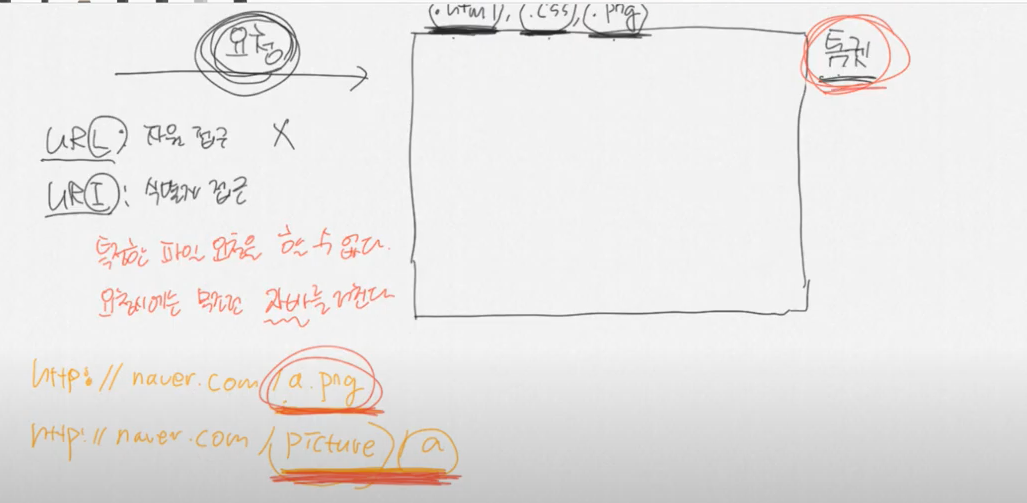 (.html), (.css), (.png)
요청
톰켓
URL: 자원 접근 X
URI: 식별자 접근
특정한 파일 요청을 할 수 없다.
요청시에는 무조건 자바를 거친다
http://naver.com/a.png
http://naver.com/picture/a